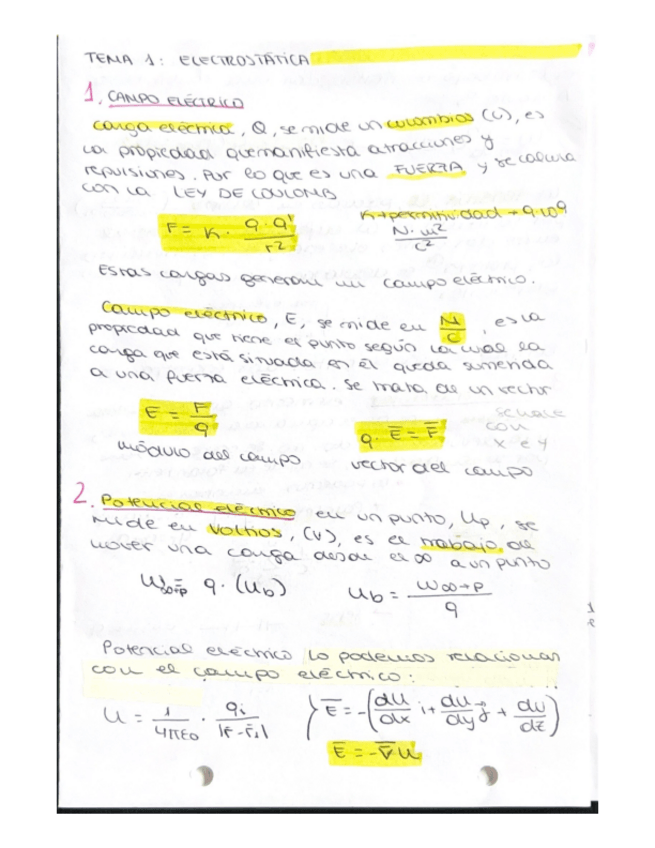 TEMA 1: ELECTROSTÁTICA
1. CAMPO ELÉCTRICO
carga eléctrica, Q, se mide un culombios (C), es
la propiedad que manifiesta atracciones y
repulsiones. Por lo que es una FUERZA y se calcula
con la LEY DE COULOMB
F = K · q · q' / r²
K → permitividad → 9·10⁹
N · m² / C²
Estas cargas generan un campo eléctrico.
Campo eléctrico, E, se mide en N/C, es la
propiedad que tiene el punto según la cual la
carga que está situada en él queda sometida
a una fuerza eléctrica. Se trata de un vector
E = F / q
módulo del campo
q · E̅ = F̅
vector del campo
con
x e y
2. Potencial eléctrico en un punto, Up, se
mide en Voltios, (V), es el trabajo de
mover una carga desde el ∞ a un punto
q · (Ub)
Ub = W∞→p / q
Potencial eléctrico lo podemos relacionar
con el campo eléctrico:
U = 1 / 4πε₀ · qi / |r̅ - r̅i|
E̅ = -(du/dx i + du/dy j + du/dz)
E̅ = -∇̅ U